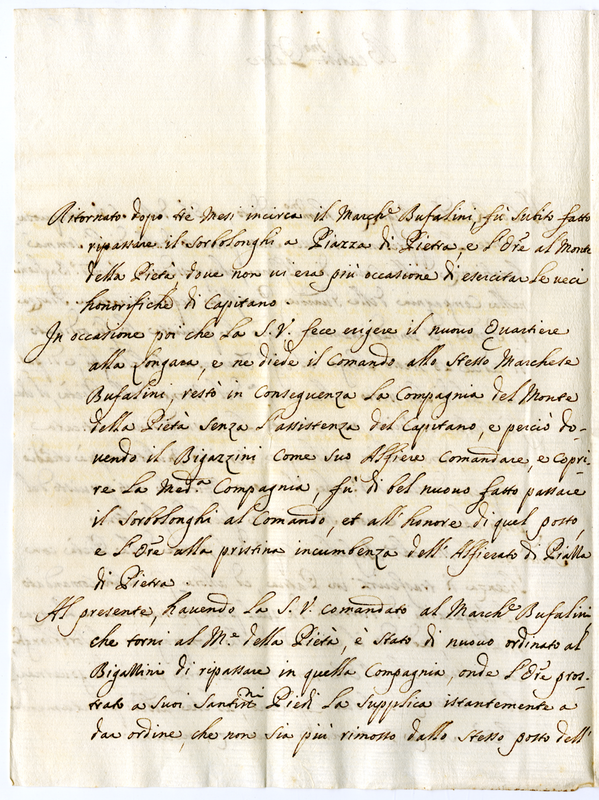 Ritornato dopo trè Mesi incirca il March.e Bufalini, fù subito fatto
ripassare il Sorbolonghi a Piazza di Pietra, e l'Ore al Monte
della Pietà dove non vi era più occasione di esercitar le veci
honorifiche di Capitano.
In occasione poi che La S. V. fece erigere il nuovo Quartiere
alla Longara, e ne diede il Comando allo stesso Marchese
Bufalini, restò in Conseguenza La Compagnia del Monte
della Pietà senza l'assistenza del Capitano, e perciò do-
vendo il Bigazzini come suo Alfiere Comandare, e Copri-
re La Med.a Compagnia, fù di bel nuovo fatto passare
il Sorbolonghi al Comando, et all'honore di quel posto,
e l'Ore alla pristina incumbenza dell'Alfierato di Piazza
di Pietra
Al presente, havendo La S. V. comandato al March.e Bufalini
che torni al M.e della Pietà, è stato di nuovo ordinato al
Bigazzini di ripassare in quella Compagnia, onde l'Ore pros-
trato a suoi Santiss.mi Piedi La supplica istantemente a
dar ordine, che non sia più rimosso dallo stesso posto dell'